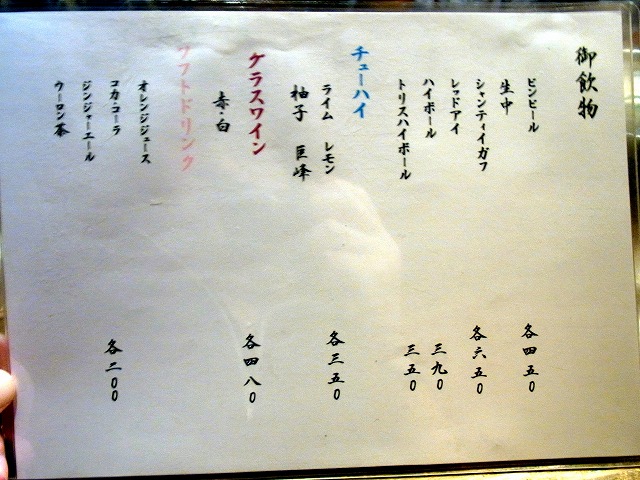 御飲物
ビンビール
生中 各四五〇
シャンティイガフ
レッドアイ 各六五〇
ハイボール 三九〇
トリスハイボール 三五〇
チューハイ
ライム レモン 各三五〇
柚子 巨峰
グラスワイン 各四八〇
赤・白
ソフトドリンク
オレンジジュース
コカ・コーラ 各二〇〇
ジンジャーエール
ウーロン茶